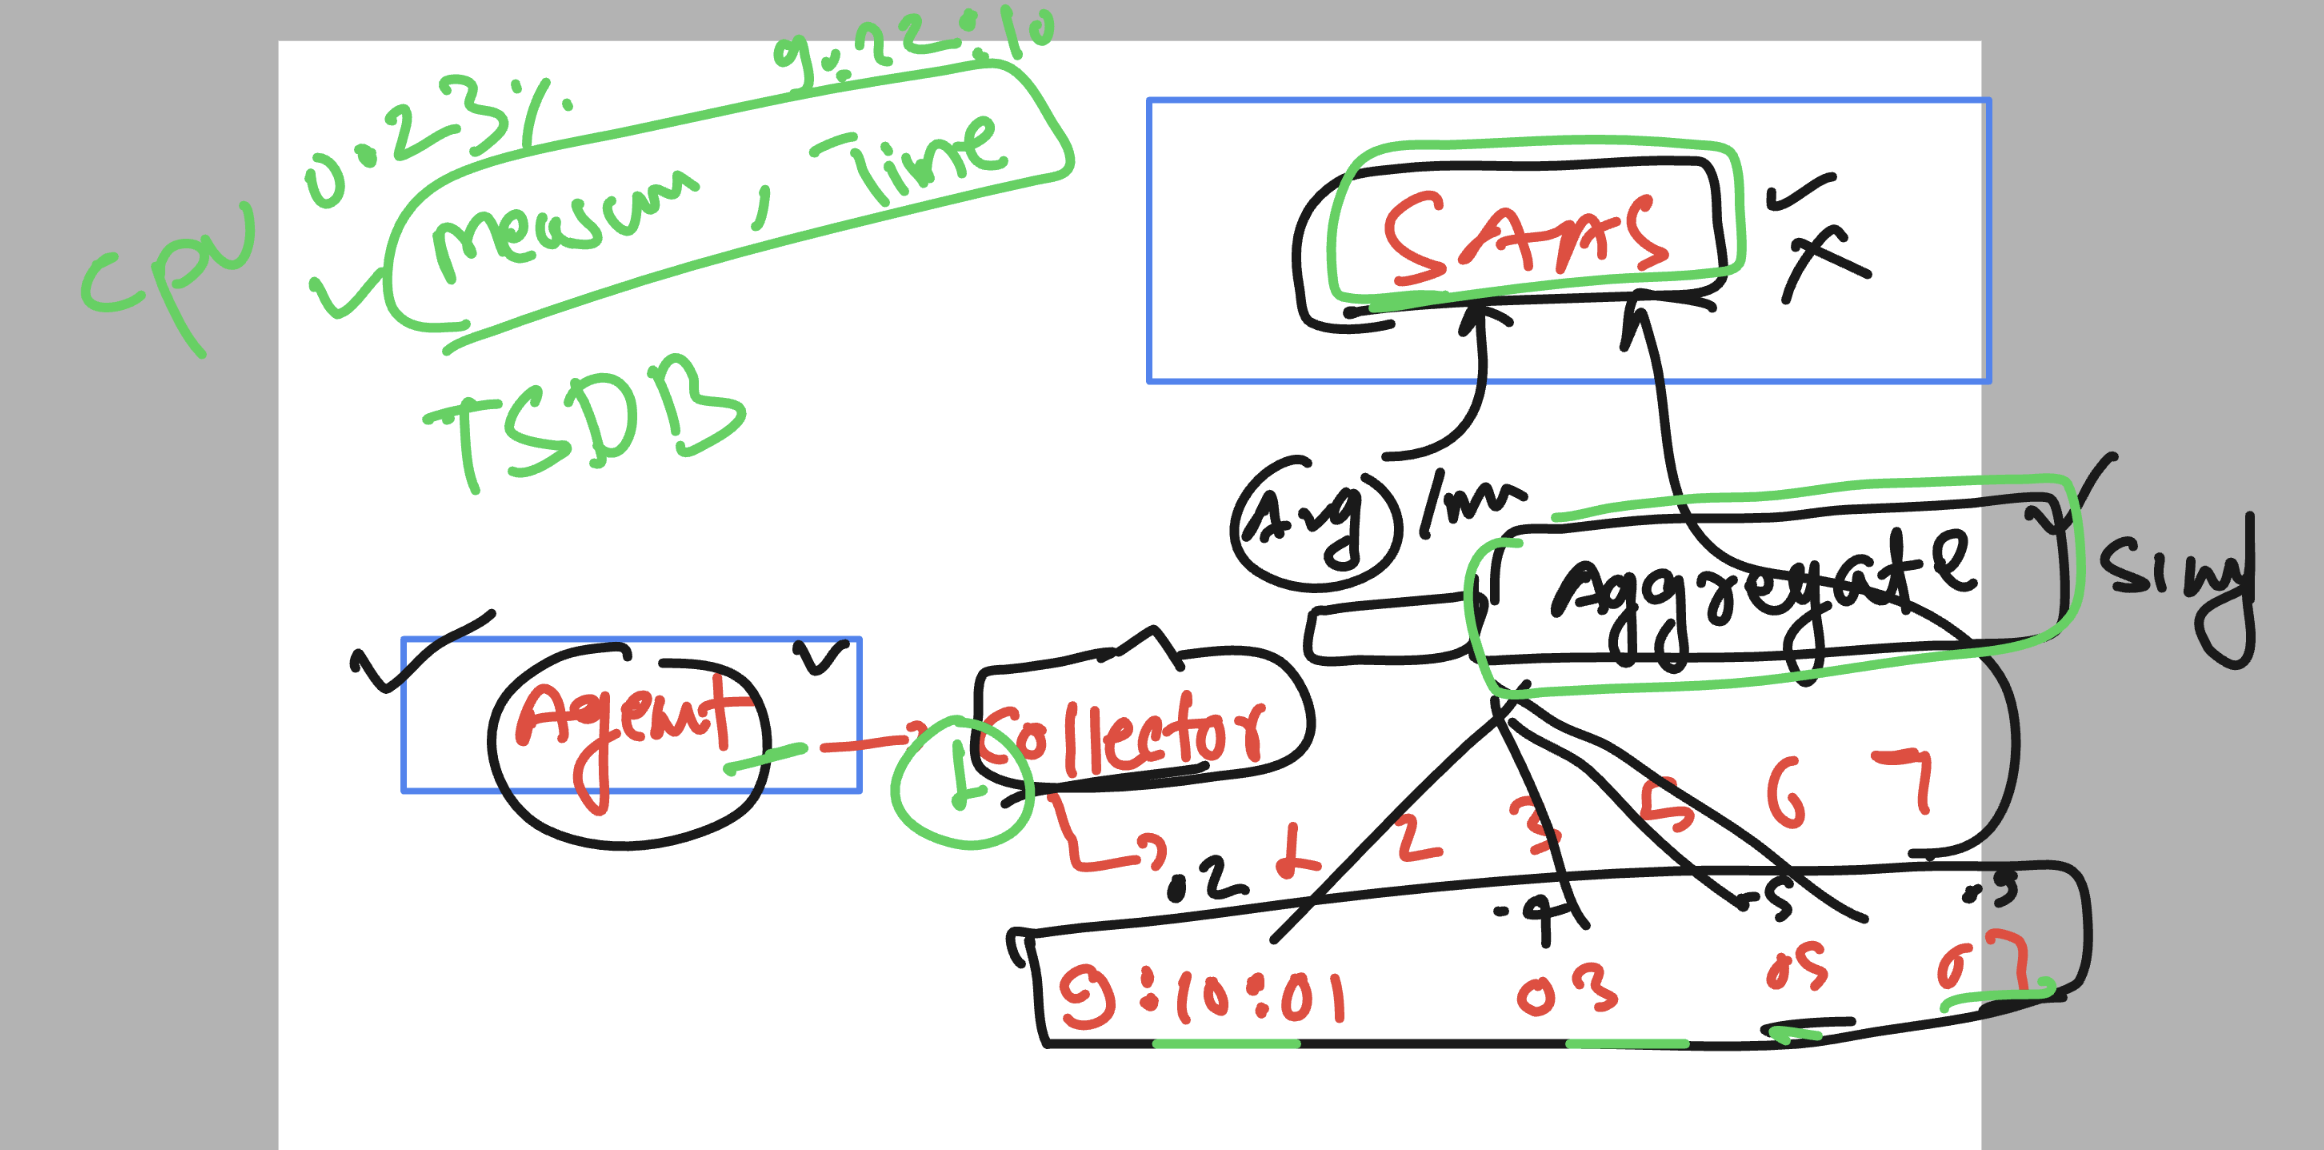 9:22:10
0.23%
cpu
Measum, Time
TSDB
SAAS
Avg /m
Aggregate
Sing
Agent
Collector
1
1 2 3 5 6 7
.2 .4 .5 .3
9:10:01 03 05 07